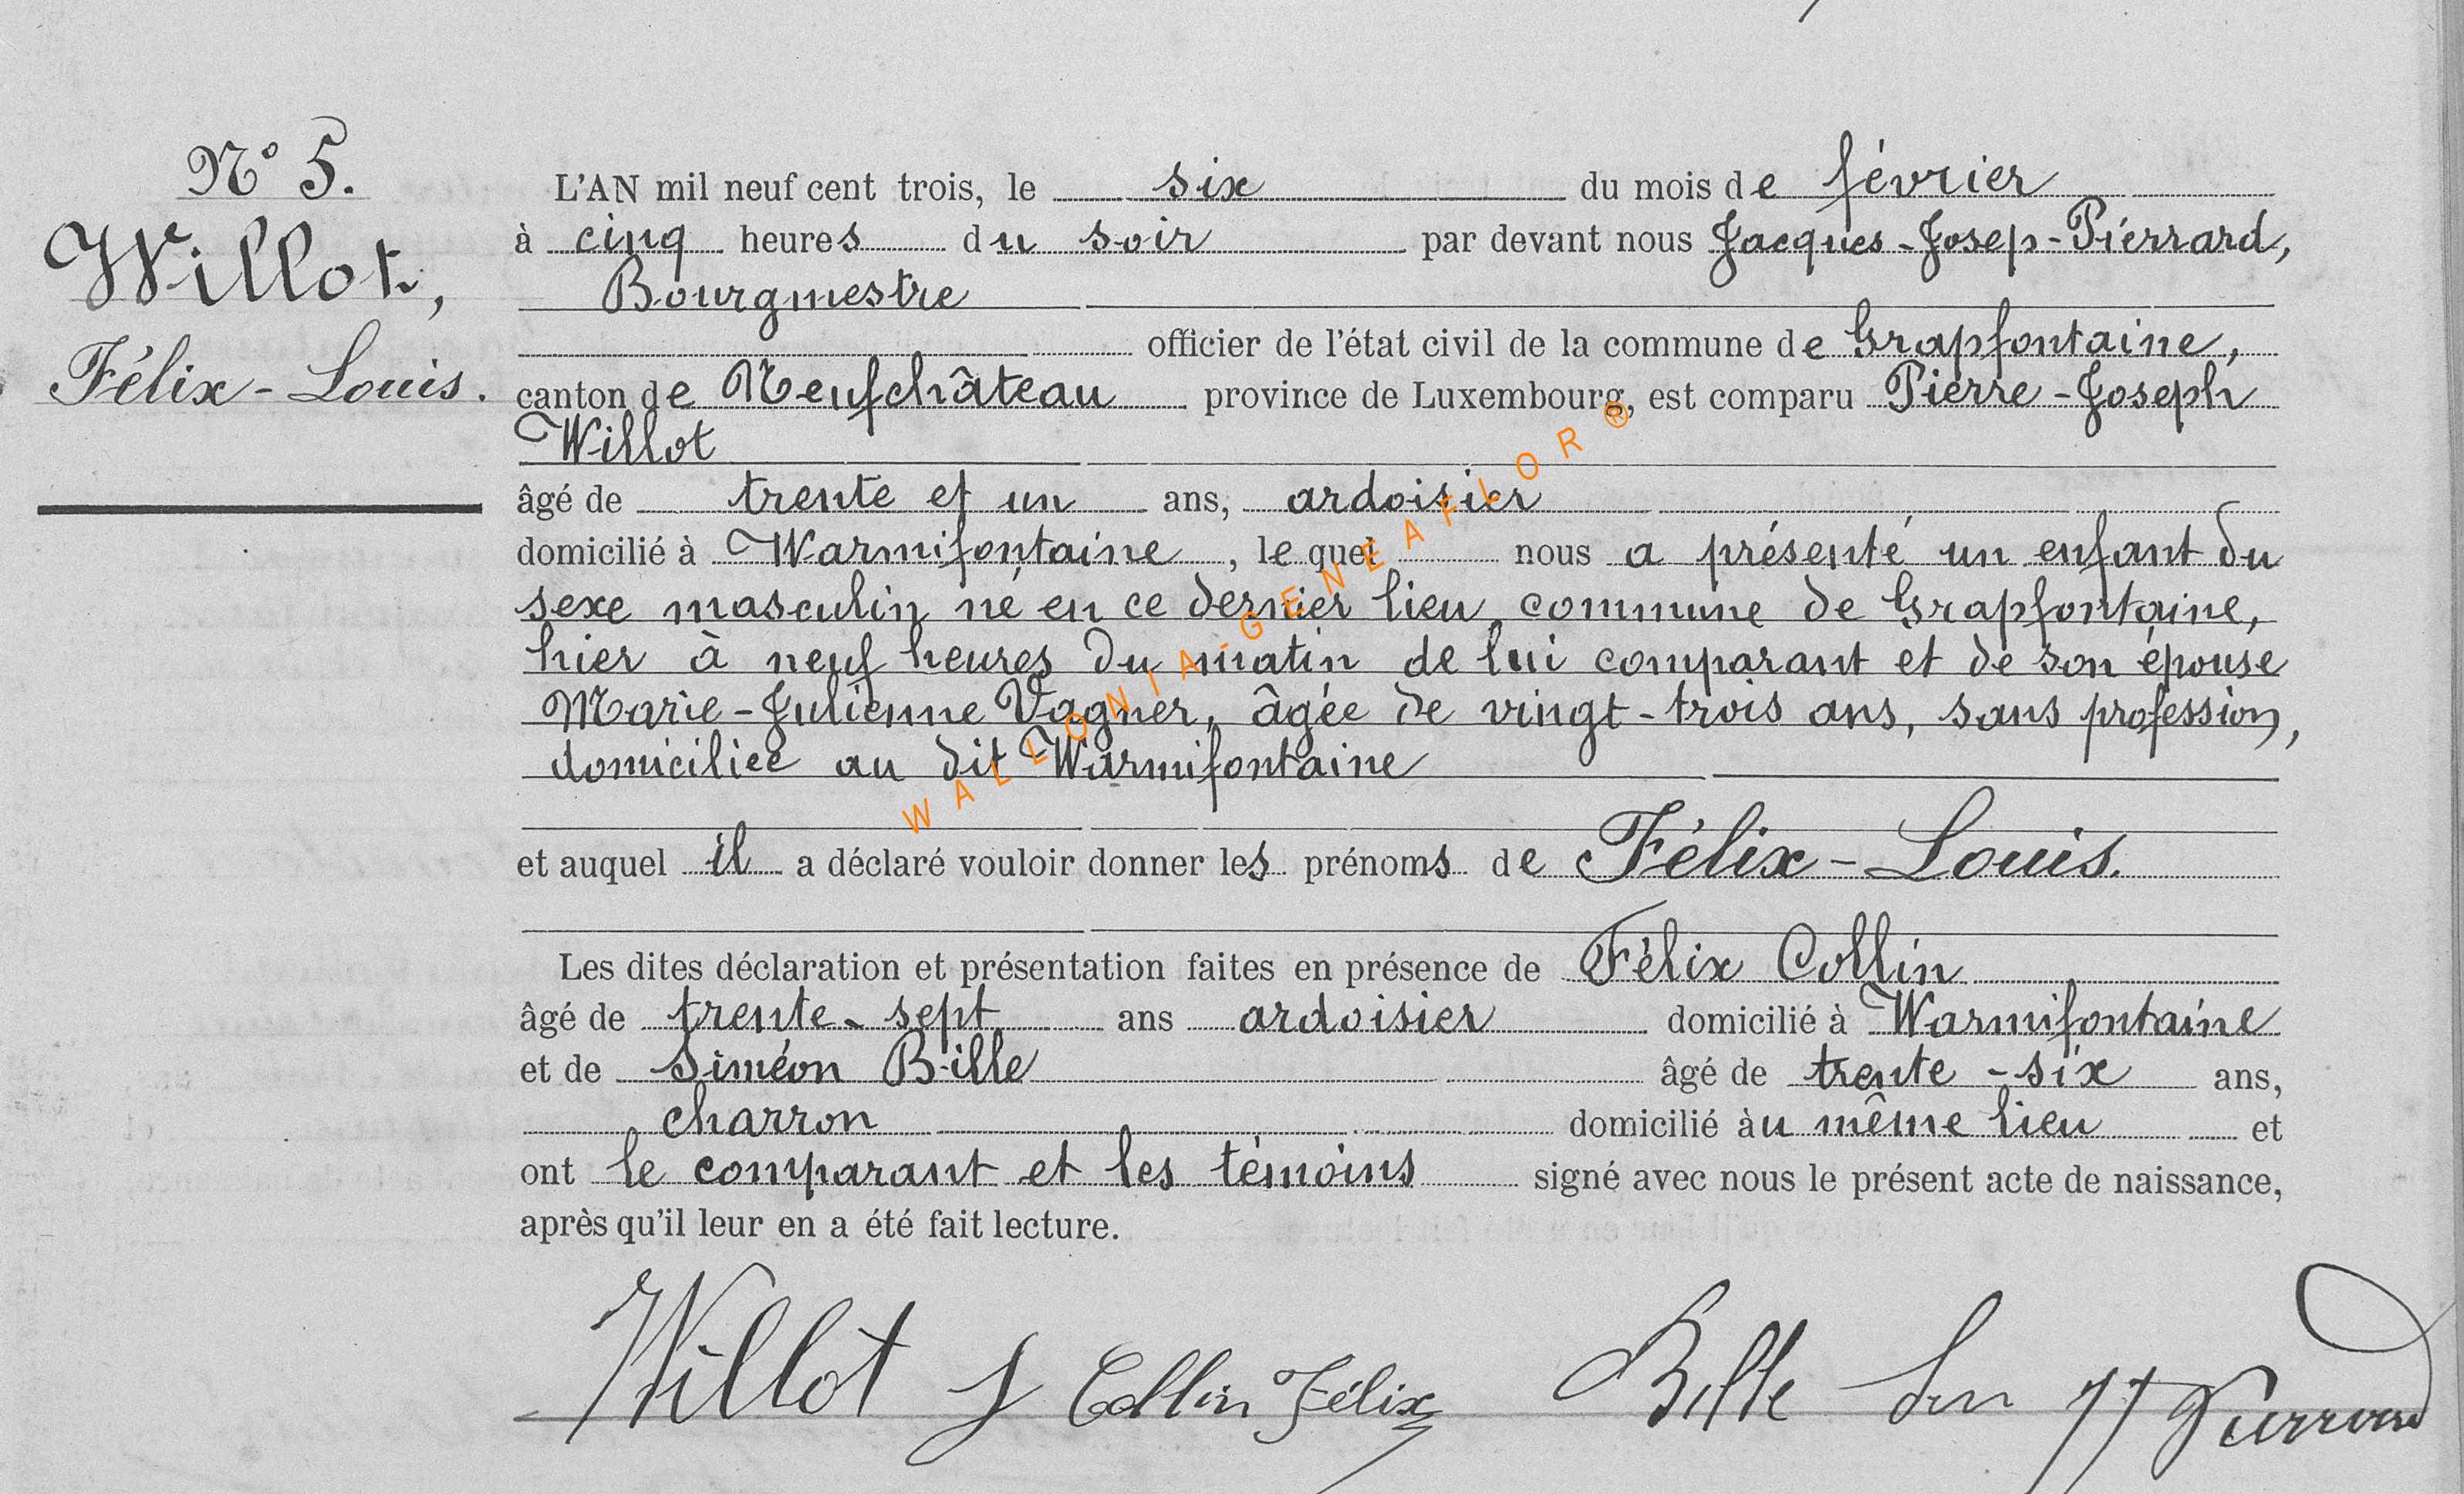 N° 5.
Willot,
Félix-Louis.
L'AN mil neuf cent trois, le six du mois de février
à cinq heures du soir par devant nous Jacques-Josep-Piérrard,
Bourgmestre
officier de l'état civil de la commune de Grapfontaine,
canton de Neufchâteau province de Luxembourg, est comparu Pierre-Joseph
Willot
âgé de trente et un ans, ardoisier
domicilié à Warmifontaine, le quel nous a présenté un enfant du
sexe masculin né en ce dernier lieu, commune de Grapfontaine,
hier à neuf heures du matin de lui comparant et de son épouse
Marie-Julienne Vagner, âgée de vingt-trois ans, sans profession,
domiciliée au dit Warmifontaine
et auquel il a déclaré vouloir donner les prénoms de Félix-Louis.
Les dites déclaration et présentation faites en présence de Félix Collin
âgé de trente-sept ans ardoisier domicilié à Warmifontaine
et de Siméon Bille âgé de trente-six ans,
charron domicilié àu même lieu et
ont le comparant et les témoins signé avec nous le présent acte de naissance,
après qu'il leur en a été fait lecture.
Willot J Collin Félix Bille JJ Pierrard
WALLONIA-GENEAFLOR®